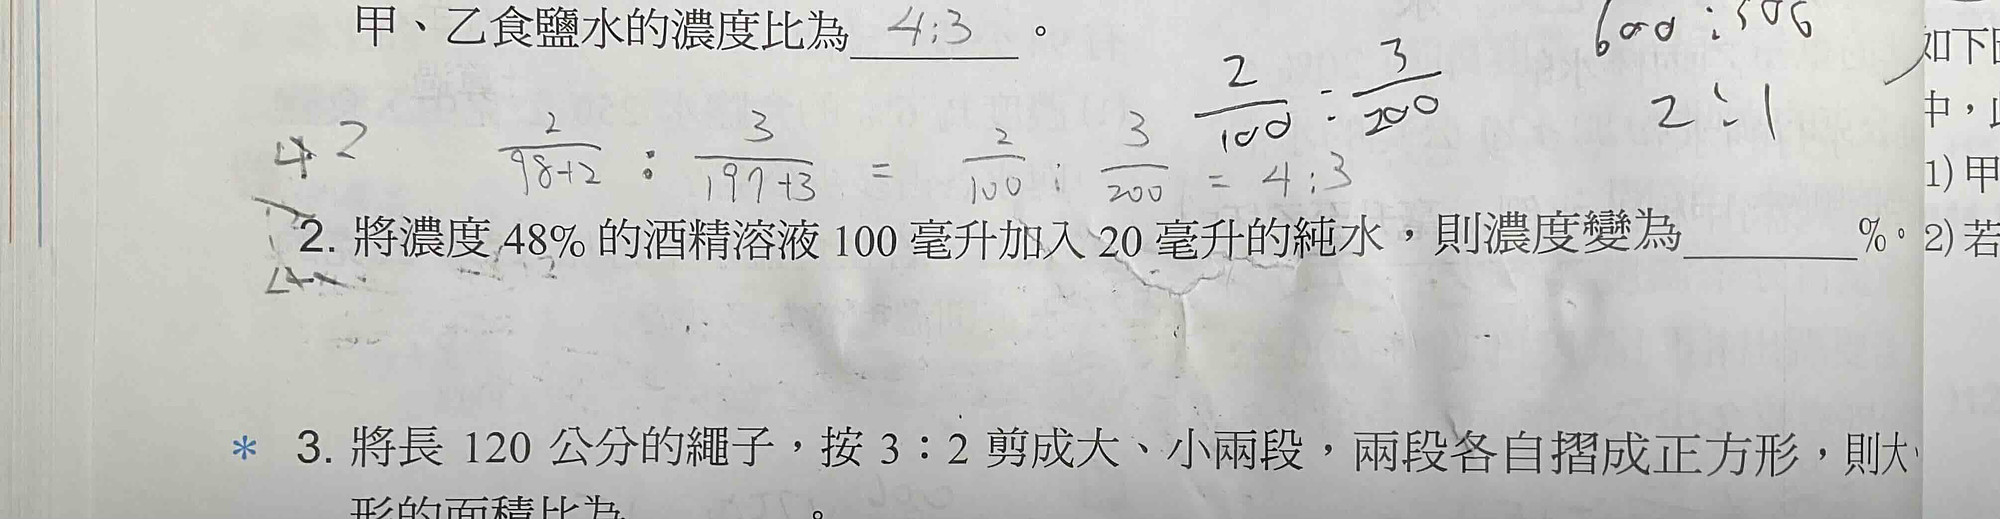 甲、乙食鹽水的濃度比為 4:3 。
600 : 300
2 : 1
2/100 : 3/200
4 2
2/98+2 : 3/197+3 = 2/100 : 3/200 = 4:3
2. 將濃度 48% 的酒精溶液 100 毫升加入 20 毫升的純水，則濃度變為 %。
* 3. 將長 120 公分的繩子，按 3：2 剪成大、小兩段，兩段各自摺成正方形，則大
形的面積比為 。
如下
中，
1) 甲
2) 若